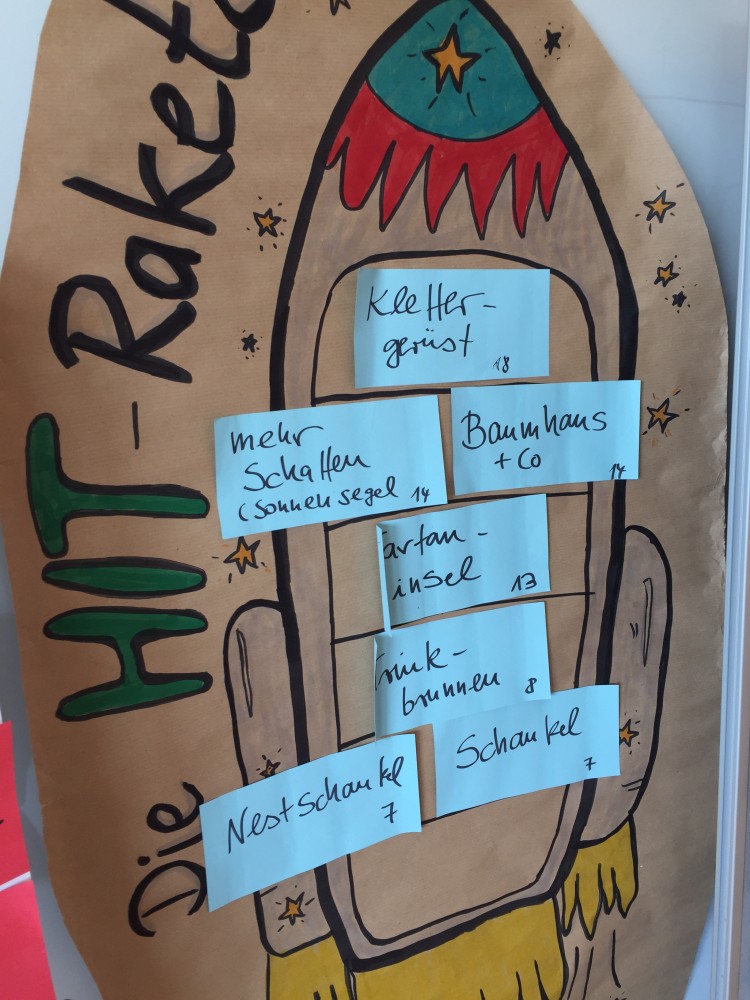 Die HIT-Rakete
Kletter-
gerüst 18
mehr
Schatten
(Sonnensegel 14
Baumhaus
+ Co 14
artan-
insel 13
rink-
brunnen 8
Nestschaukel
7
Schaukel
7